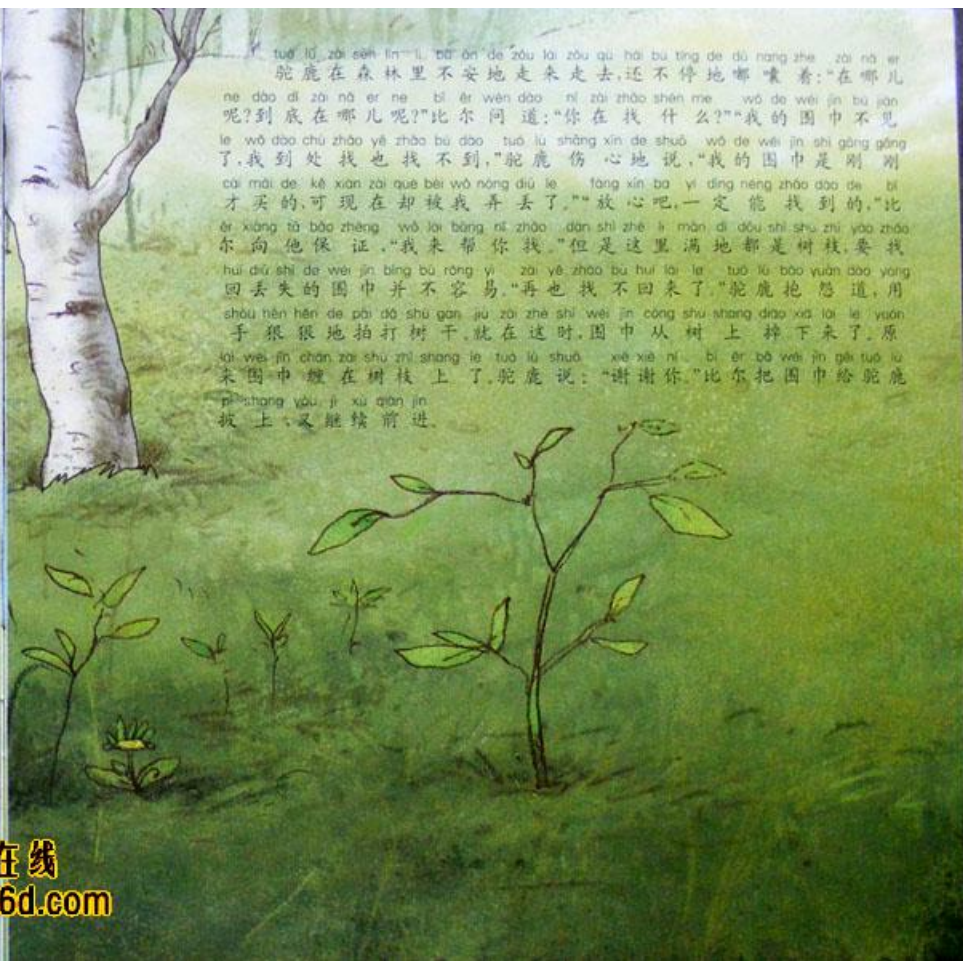 tuó lù zài sēn lín lǐ bù ān de zǒu lái zǒu qù hái bù tíng de dū nang zhe zài nǎ er
驼鹿在森林里不安地走来走去,还不停地嘟囔着:“在哪儿
ne dào dǐ zài nǎ er ne bǐ ěr wèn dào nǐ zài zhǎo shén me wǒ de wéi jīn bú jiàn
呢?到底在哪儿呢?”比尔问道:“你在找什么?”“我的围巾不见
le wǒ dào chù zhǎo yě zhǎo bú dào tuó lù shāng xīn de shuō wǒ de wéi jīn shì gāng gāng
了,我到处找也找不到,”驼鹿伤心地说,“我的围巾是刚刚
cái mǎi de kě xiàn zài què bèi wǒ nòng diū le fàng xīn ba yí dìng néng zhǎo dào de bǐ
才买的,可现在却被我弄丢了。”“放心吧,一定能找到的,”比
ěr xiàng tā bǎo zhèng wǒ lái bāng nǐ zhǎo dàn shì zhè lǐ mǎn dì dōu shì shù zhī yào zhǎo
尔向他保证,“我来帮你找。”但是这里满地都是树枝,要找
huí diū shī de wéi jīn bìng bù róng yì zài yě zhǎo bù huí lái le tuó lù bào yuàn dào yòng
回丢失的围巾并不容易。“再也找不回来了。”驼鹿抱怨道,用
shǒu hěn hěn de pāi dǎ shù gàn jiù zài zhè shí wéi jīn cóng shù shang diào xià lái le yuán
手狠狠地拍打树干。就在这时,围巾从树上掉下来了。原
lái wéi jīn chán zài shù zhī shang le tuó lù shuō xiè xiè nǐ bǐ ěr bǎ wéi jīn gěi tuó lù
来围巾缠在树枝上了。驼鹿说:“谢谢你。”比尔把围巾给驼鹿
pī shang yòu jì xù qián jìn
披上,又继续前进。
在线
6d.com